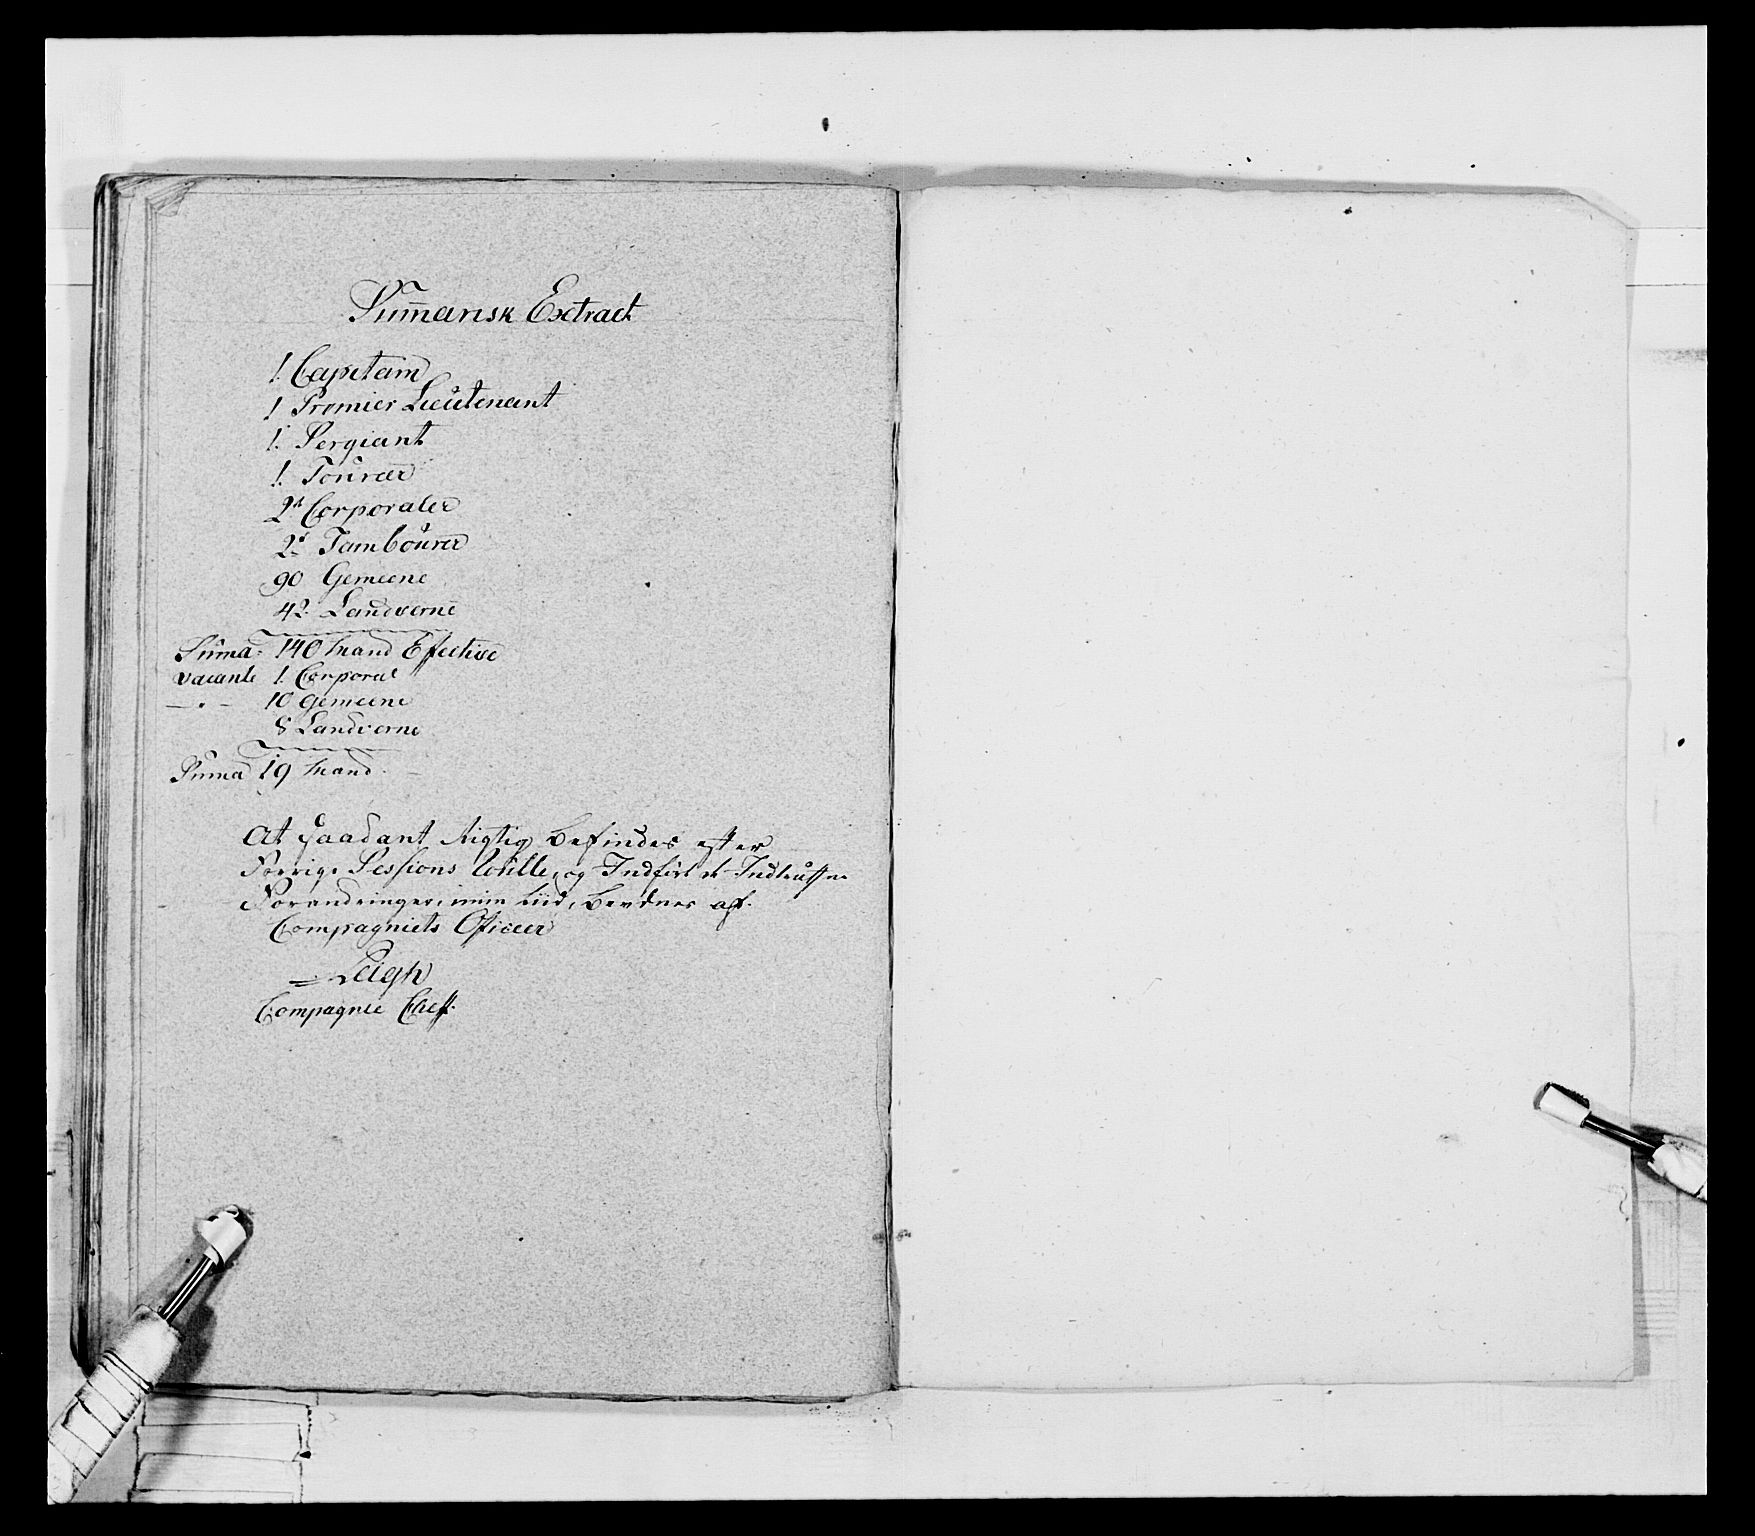 Sum̅arisk Extract
1. Capitain
1 Premier Lieutenant
1. Sergiant
1. Fourær
2de Corporaler
2de Tambourer
90 Gemeene
42. Landværne
Suma: 140 Mand Efective
vacante 1. Corporal
— . — 10 Gemeene
8 Landværne
Suma 19 Mand.
At Saadant Rigtig befindes efter
Forrige Sessions Rulle, og Indført de Indtrufne
Forandringer, i min tiid, bevidner af.
Compagniets Oficeer
Leigh
Compagnie Cheff.